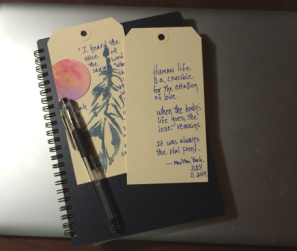 "I heard the
voice of
the Lord
saying
Human life
is a crucible
for the creation
of love.
When the body's
life goes, the
love remains.
It was always
the real point.
— Martha Beck
JULY
2019